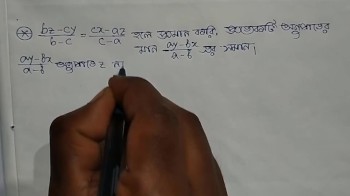 ⊛ (bz-cy)/(b-c) = (cx-az)/(c-a) হলে প্রমাণ করি, প্রত্যেকটি অনুপাতের
মান (ay-bx)/(a-b) এর সমান।
(ay-bx)/(a-b) অনুপাতে z না